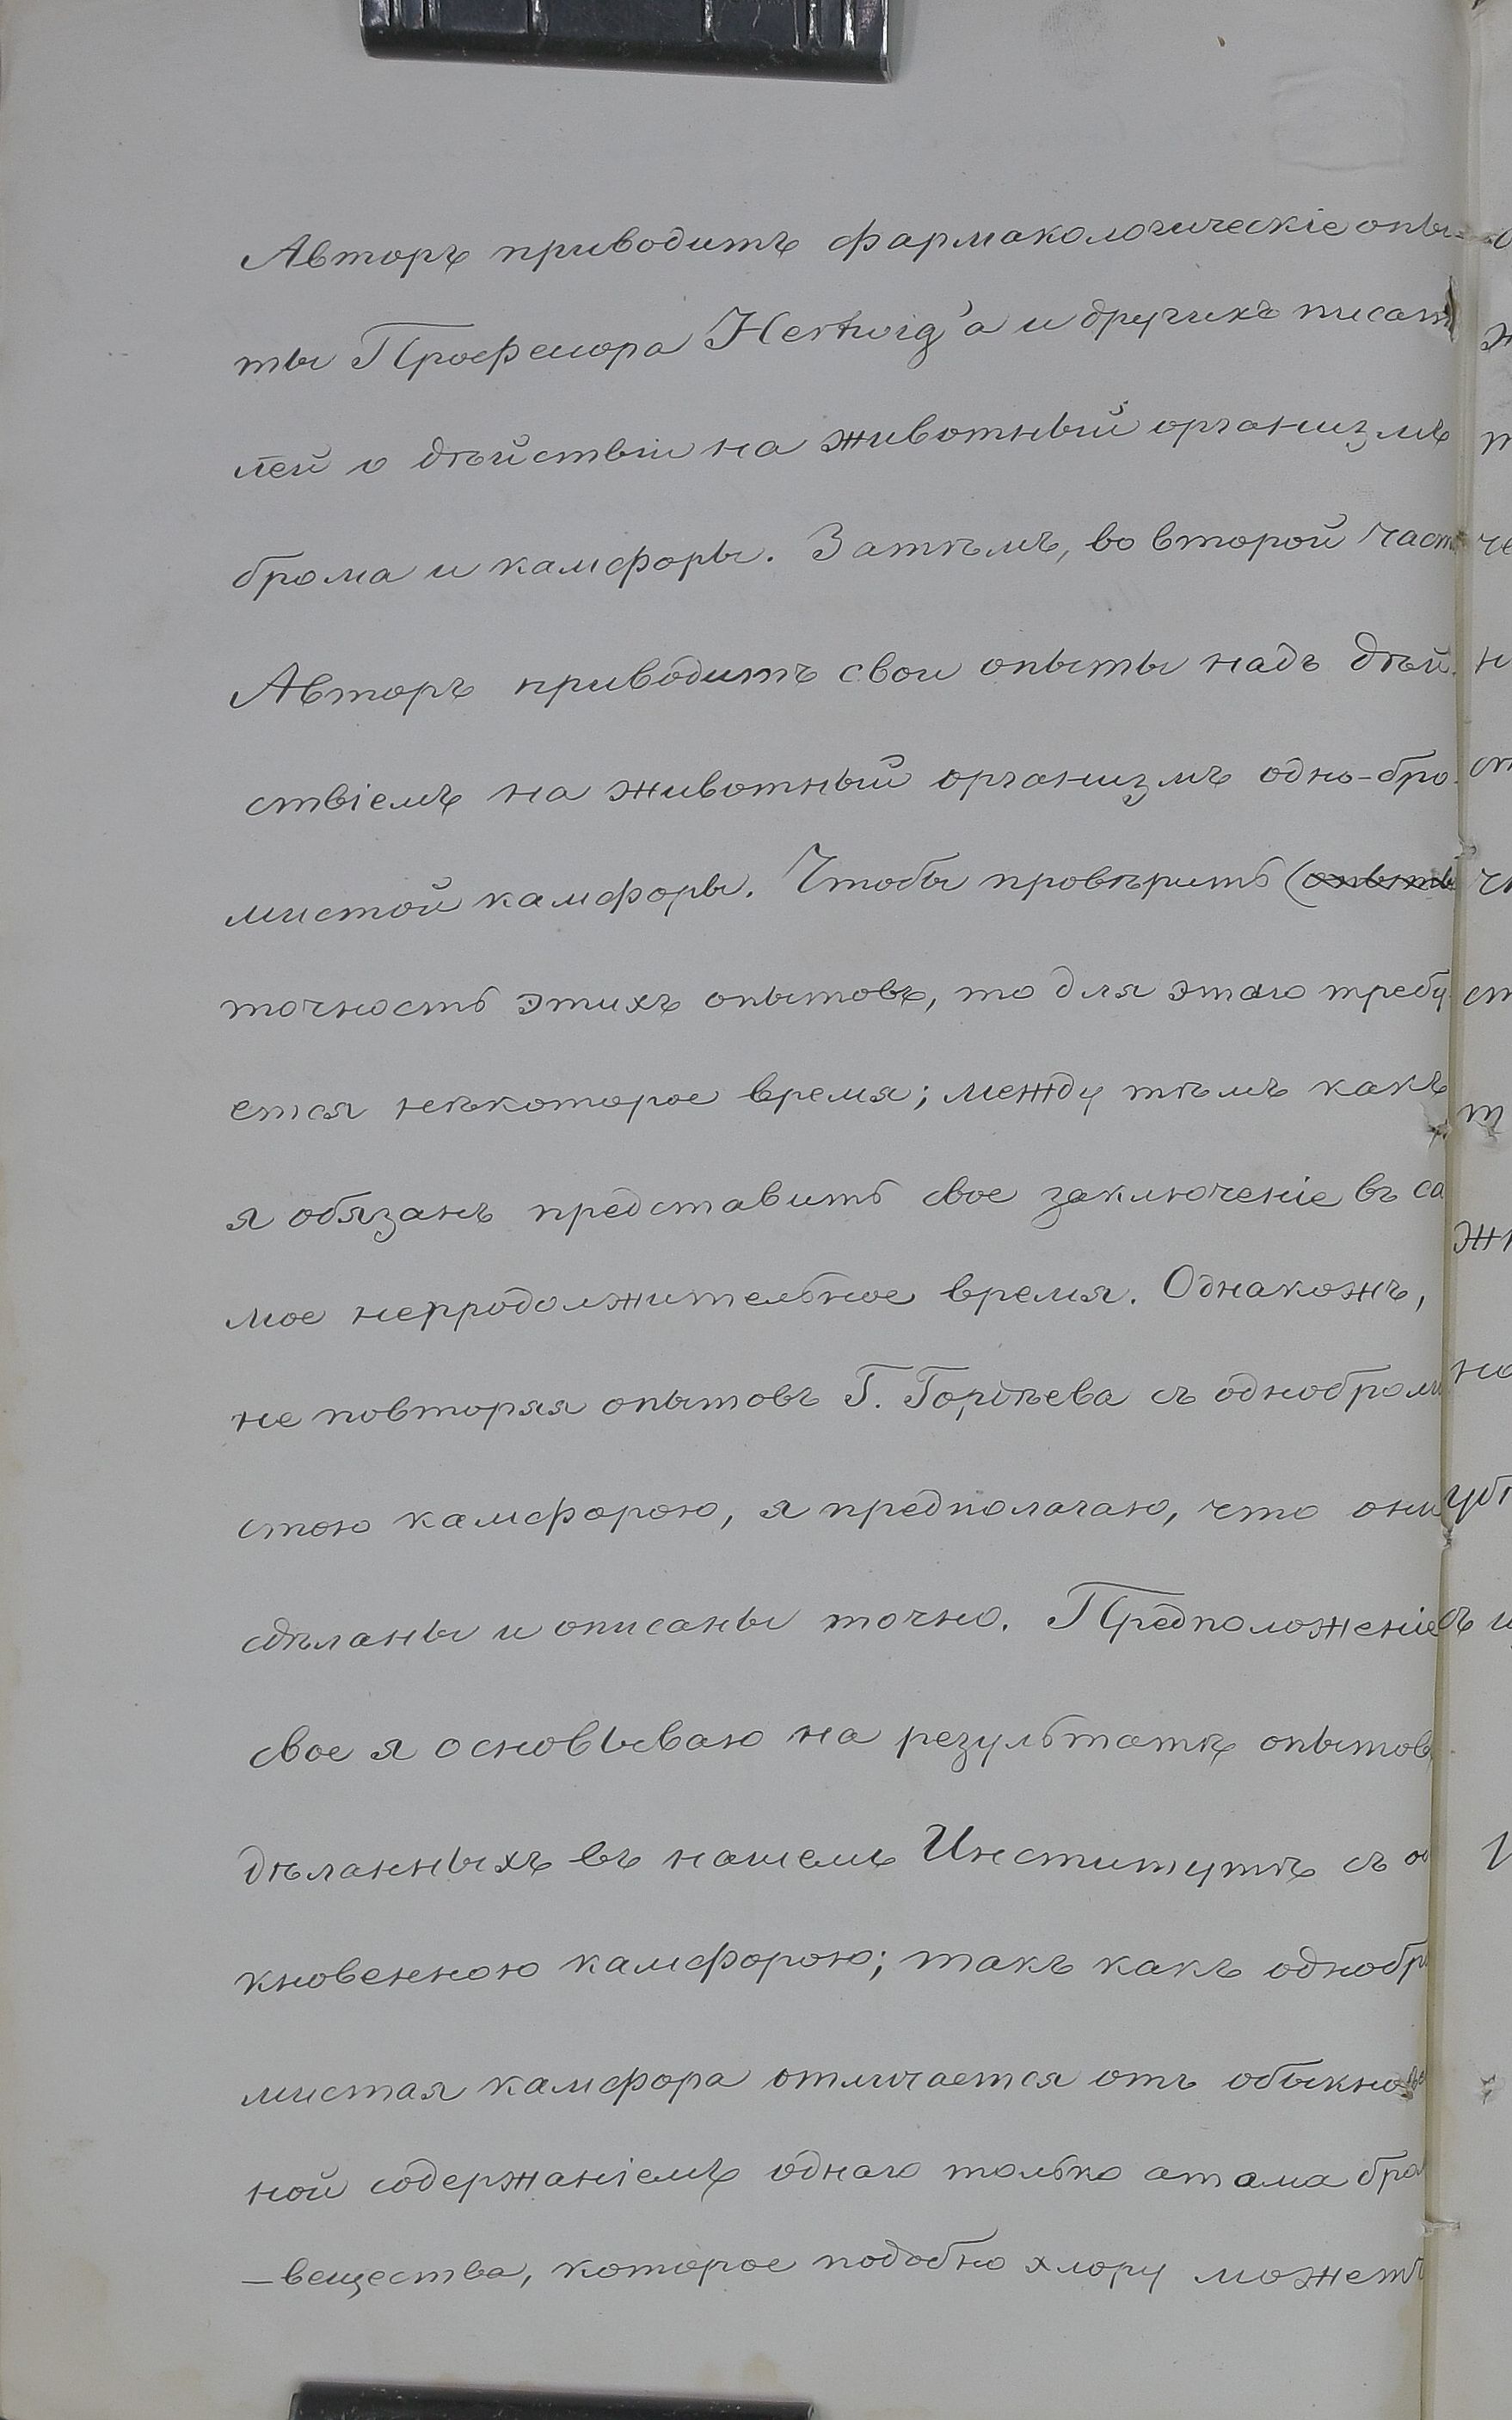 Авторъ приводитъ фармакологическіе опы-
ты Професора Hertwig'а и другихъ писат
лей о дѣйствіи на животный организмъ
брома и камфоры. Затѣмъ, во второй част
Авторъ приводитъ свои опыты надъ дѣй-
ствіемъ на животный организмъ одно-бро-
мистой камфоры. Чтобы провѣрить (опыты
точность этихъ опытовъ, то для этаго требу
ется нѣкоторое время; между тѣмъ какъ
я обязанъ представить свое заключеніе въ са
мое непродолжительное время. Однакожъ,
не повторяя опытовъ Г. Гордѣева съ однобром
стою камфорою, я предполагаю, что они
сдѣланы и описаны точно. Предположеніе
свое я основываю на результатѣ опытовъ
дѣланныхъ въ нашемъ Институтѣ съ о
кновенною камфорою; такъ какъ однобр
мистая камфора отличается отъ обыкнове
ной содержаніемъ однаго только атама бро
—вещества, которое подобно хлору можетъ